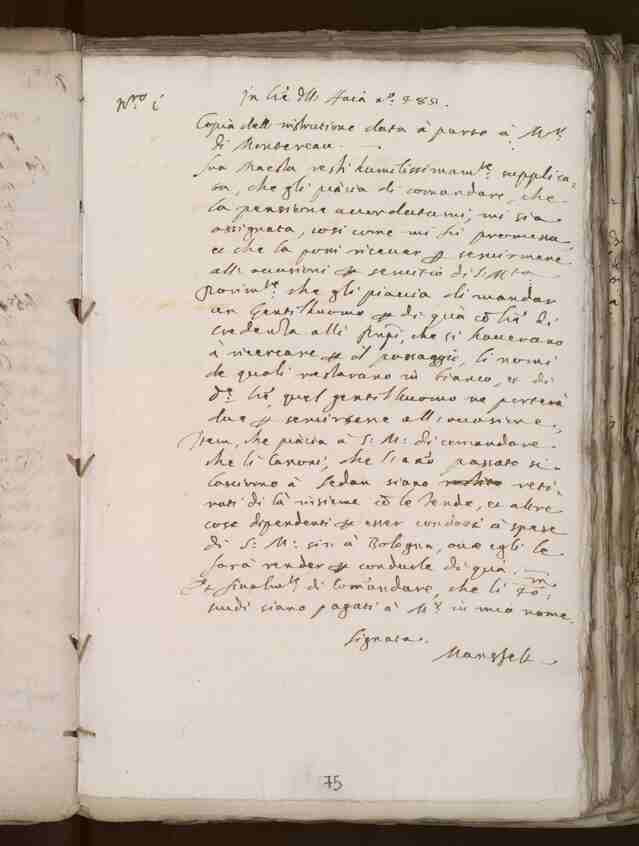 N.ro i
In l.re dell' Haia n.o 485.
Copia dell'instrutione data à parte à M.r
di Montereau.
Sua Maestà resti humilissimam.te supplica-
ta, che gli piacia di comandare, che
la pensione accordatami, mi sia
assignata, così come mi fu promessa,
et che la possi ricever p servirmene
all'occasioni p servitio di S. M.tà
Parim.te che gli piaccia di mandar
un Gentilhuomo p di quà cõ l.re di
credenza alli Prñpi, che si haverano
à ricercare p il passaggio, li nomi
de quali restarano in bianco, et di
d.e l.re quel gentilhuomo ne porterà
due p servirsene all'occasione.
Item, che piacia à S: M: di comandare
che li Canoni, che l'año passato si
lasciorno à Sedan siano reti-
rati di là insieme cõ le tende, et altre
cose dipendenti p esser condotti à spese
di S: M: sin à Bologna, ove egli le
farà render p condurle di quà.
Et finalm.te di comandare, che li 40 m
scudi siano pagati à M.r in mio nome.
Signata.
Mansfelt
75